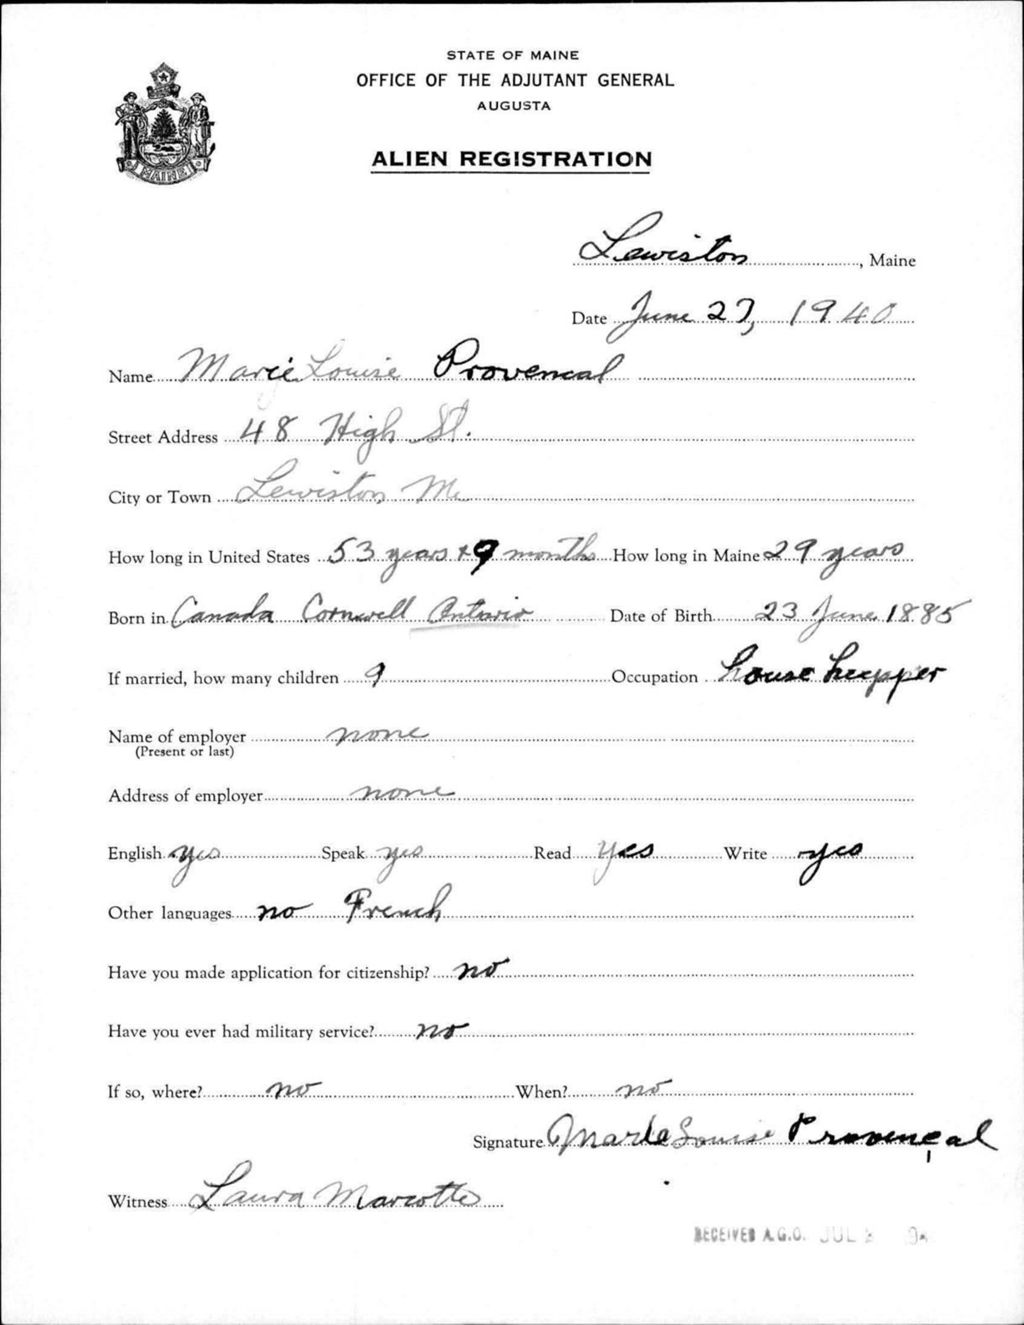 STATE OF MAINE
OFFICE OF THE ADJUTANT GENERAL
AUGUSTA
ALIEN REGISTRATION
MAINE
Lewiston, Maine
Date June 27, 1940
Name Marie Louise Provencal
Street Address 48 High St.
City or Town Lewiston Me
How long in United States 53 years + 9 months How long in Maine 29 years
Born in Canada Cornwell Ontario Date of Birth 23 June 1885
If married, how many children 9 Occupation house keepper
Name of employer none
(Present or last)
Address of employer none
English yes Speak yes Read yes Write yes
Other languages no French
Have you made application for citizenship? no
Have you ever had military service? no
If so, where? no When? no
Signature Marie Louise Provençal
Witness Laura Marcotte
RECEIVED A.G.O. JUL